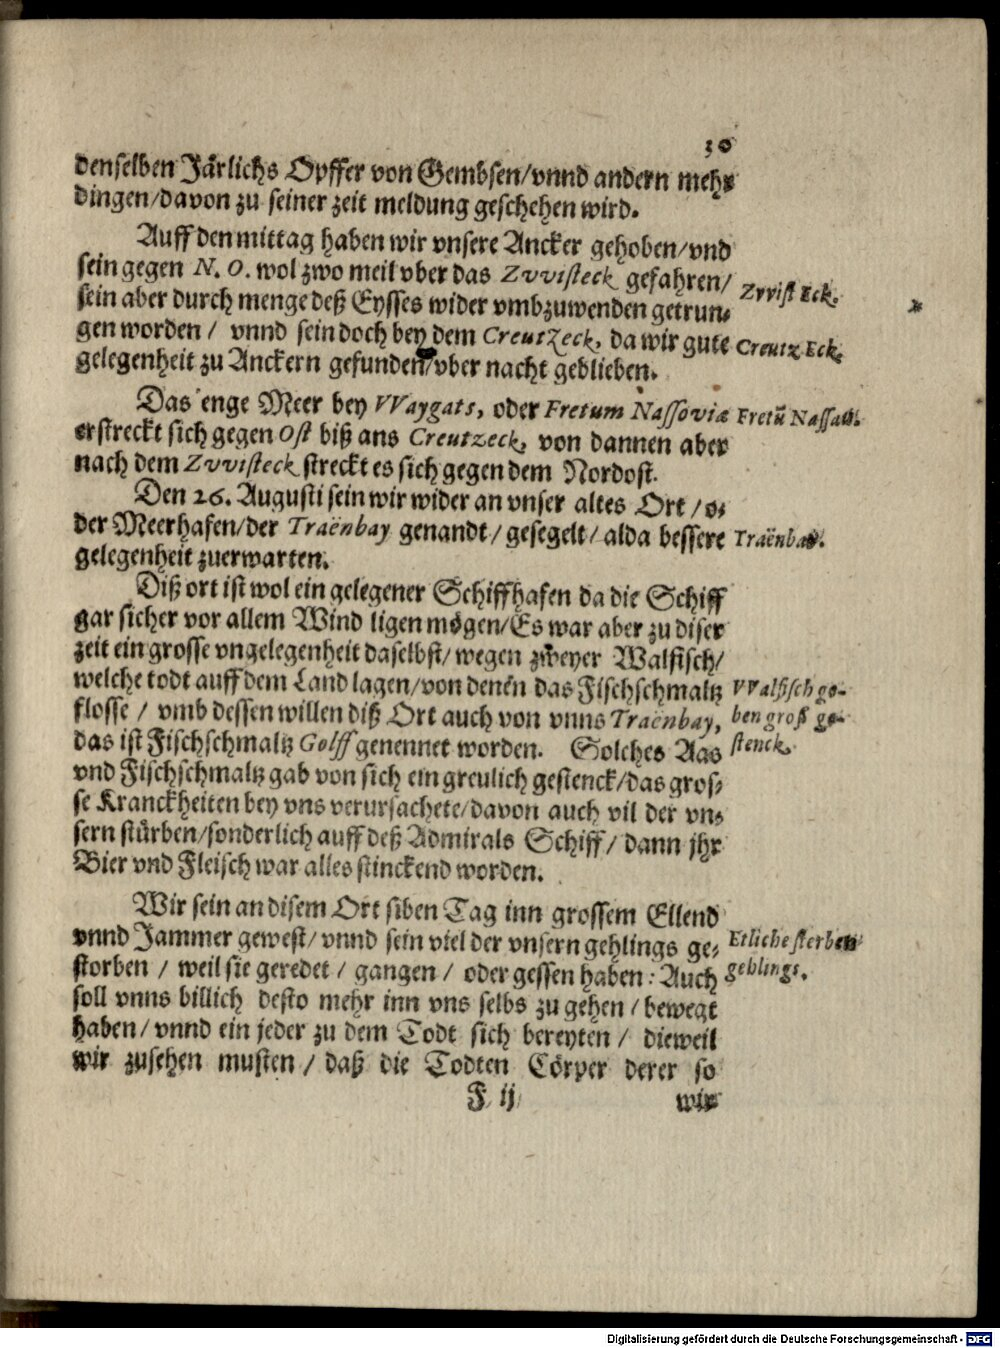 30
denselben Järlichs Opffer von Gembsen/vnnd andern mehr
dingen/davon zu seiner zeit meldung geschehen wird.
Auff den mittag haben wir vnsere Ancker gehoben/vnd
sein gegen N. O. wol zwo meil vber das Zvvisteck gefahren/
Zvvist Eck.
sein aber durch menge deß Eysses wider vmbzuwenden getrun-
gen worden / vnnd sein doch bey dem Creutzeck, da wir gute
Creutz Eck.
gelegenheit zu Anckern gefunden/vber nacht geblieben.
Das enge Meer bey VVaygats, oder Fretum Nassoviæ
Fretū Nassau.
erstreckt sich gegen Ost biß ans Creutzeck, von dannen aber
nach dem Zvvisteck streckt es sich gegen dem Nordost.
Den 26. Augusti sein wir wider an vnser altes Ort / o-
der Meerhafen/der Traënbay genandt/gesegelt/alda bessere
gelegenheit zuerwarten.
Diß ort ist wol ein gelegener Schiffhafen da die Schiff
gar sicher vor allem Wind ligen mögen/Es war aber zu diser
zeit ein grosse vngelegenheit daselbst/wegen zweyer Walfisch/
welche todt auff dem Land lagen/von denen das Fischschmaltz
VValfisch ge-
flosse / vmb dessen willen diß Ort auch von vnns Traënbay,
ben groß ge-
das ist Fischschmaltz Golff genennet worden. Solches Aas
stenck.
vnd Fischschmaltz gab von sich ein greulich gestenck/das gros-
se Kranckheiten bey vns verursachete/davon auch vil der vn-
sern stürben/sonderlich auff deß Admirals Schiff / dann jhr
Bier vnd Fleisch war alles stinckend worden.
Wir sein an disem Ort siben Tag inn grossem Ellend
vnnd Jammer gewest/vnnd sein viel der vnsern gehlings ge-
Etliche sterben
storben / weil sie geredet / gangen / oder gessen haben: Auch
gehlings.
soll vnns billich desto mehr inn vns selbs zu gehen / bewegt
haben/vnnd ein jeder zu dem Todt sich bereyten / dieweil
wir zusehen musten / daß die Todten Cörper derer so
F ij
wir
Digitalisierung gefördert durch die Deutsche Forschungsgemeinschaft - DFG